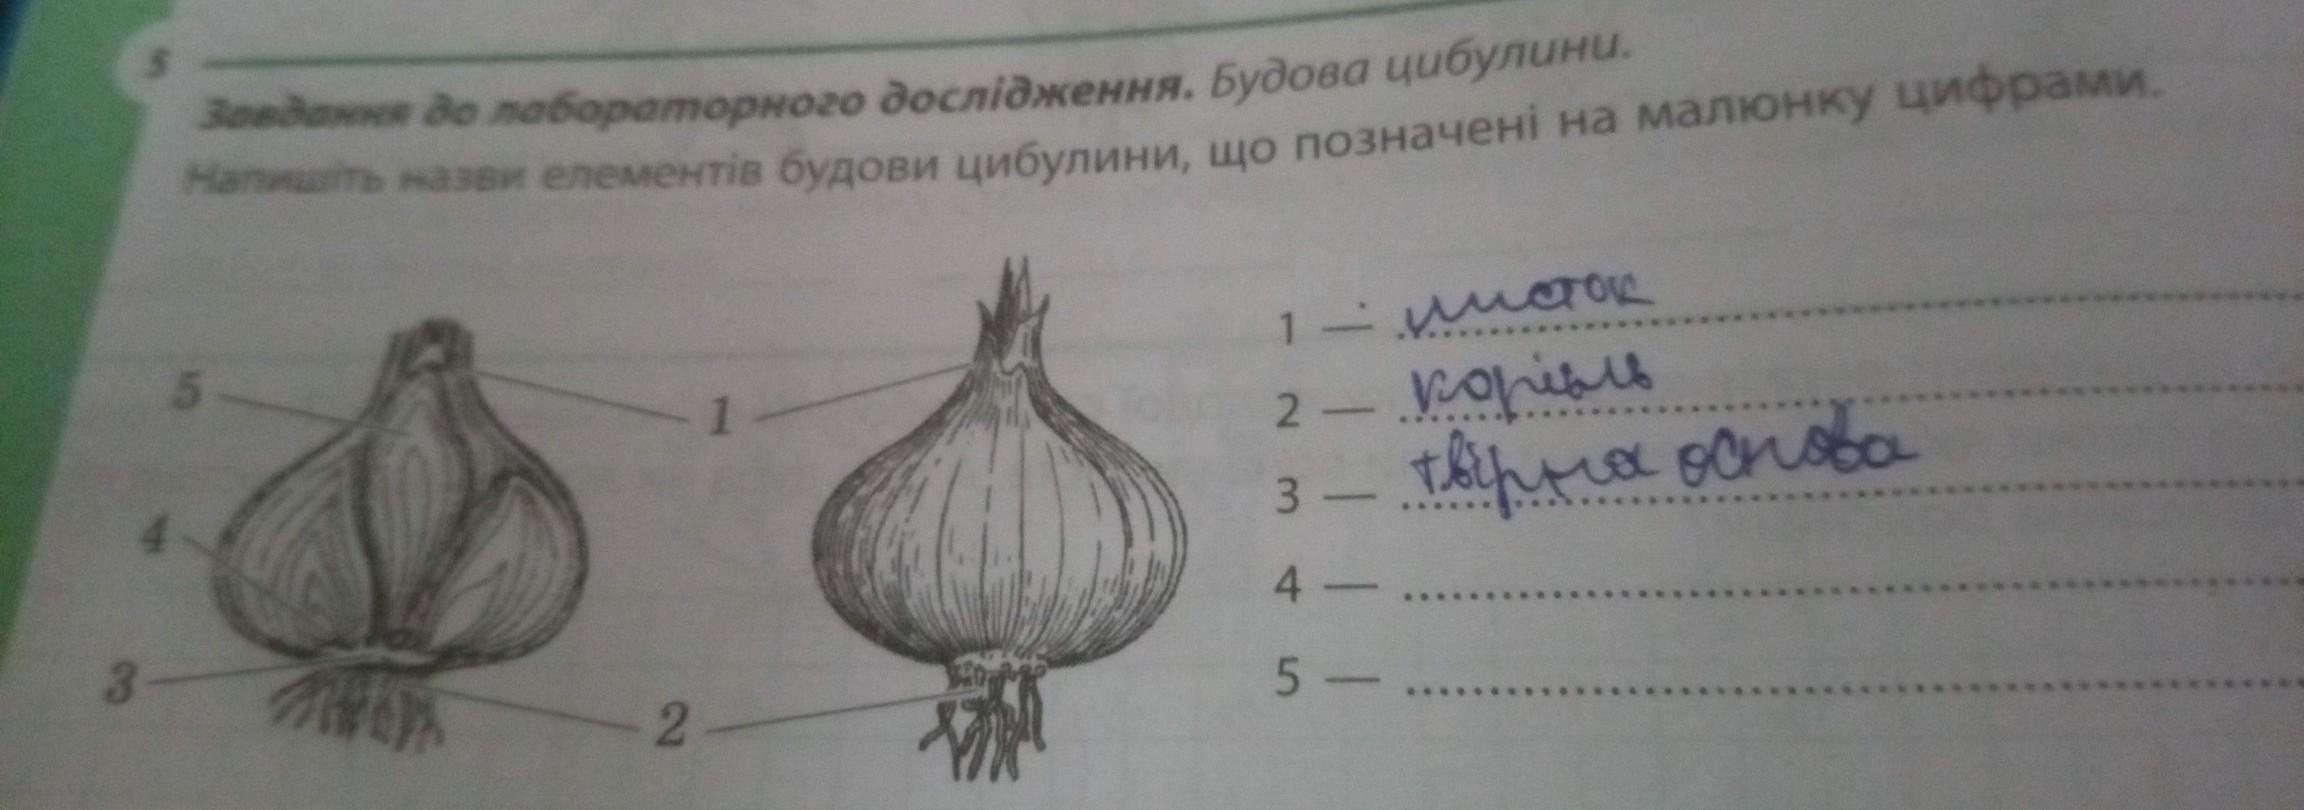 5
Завдання до лабораторного дослідження. Будова цибулини.
Напишіть назви елементів будови цибулини, що позначені на малюнку цифрами.
5
4
3
1
2
1 — листок
2 — корінь
3 — твірна основа
4 —
5 —